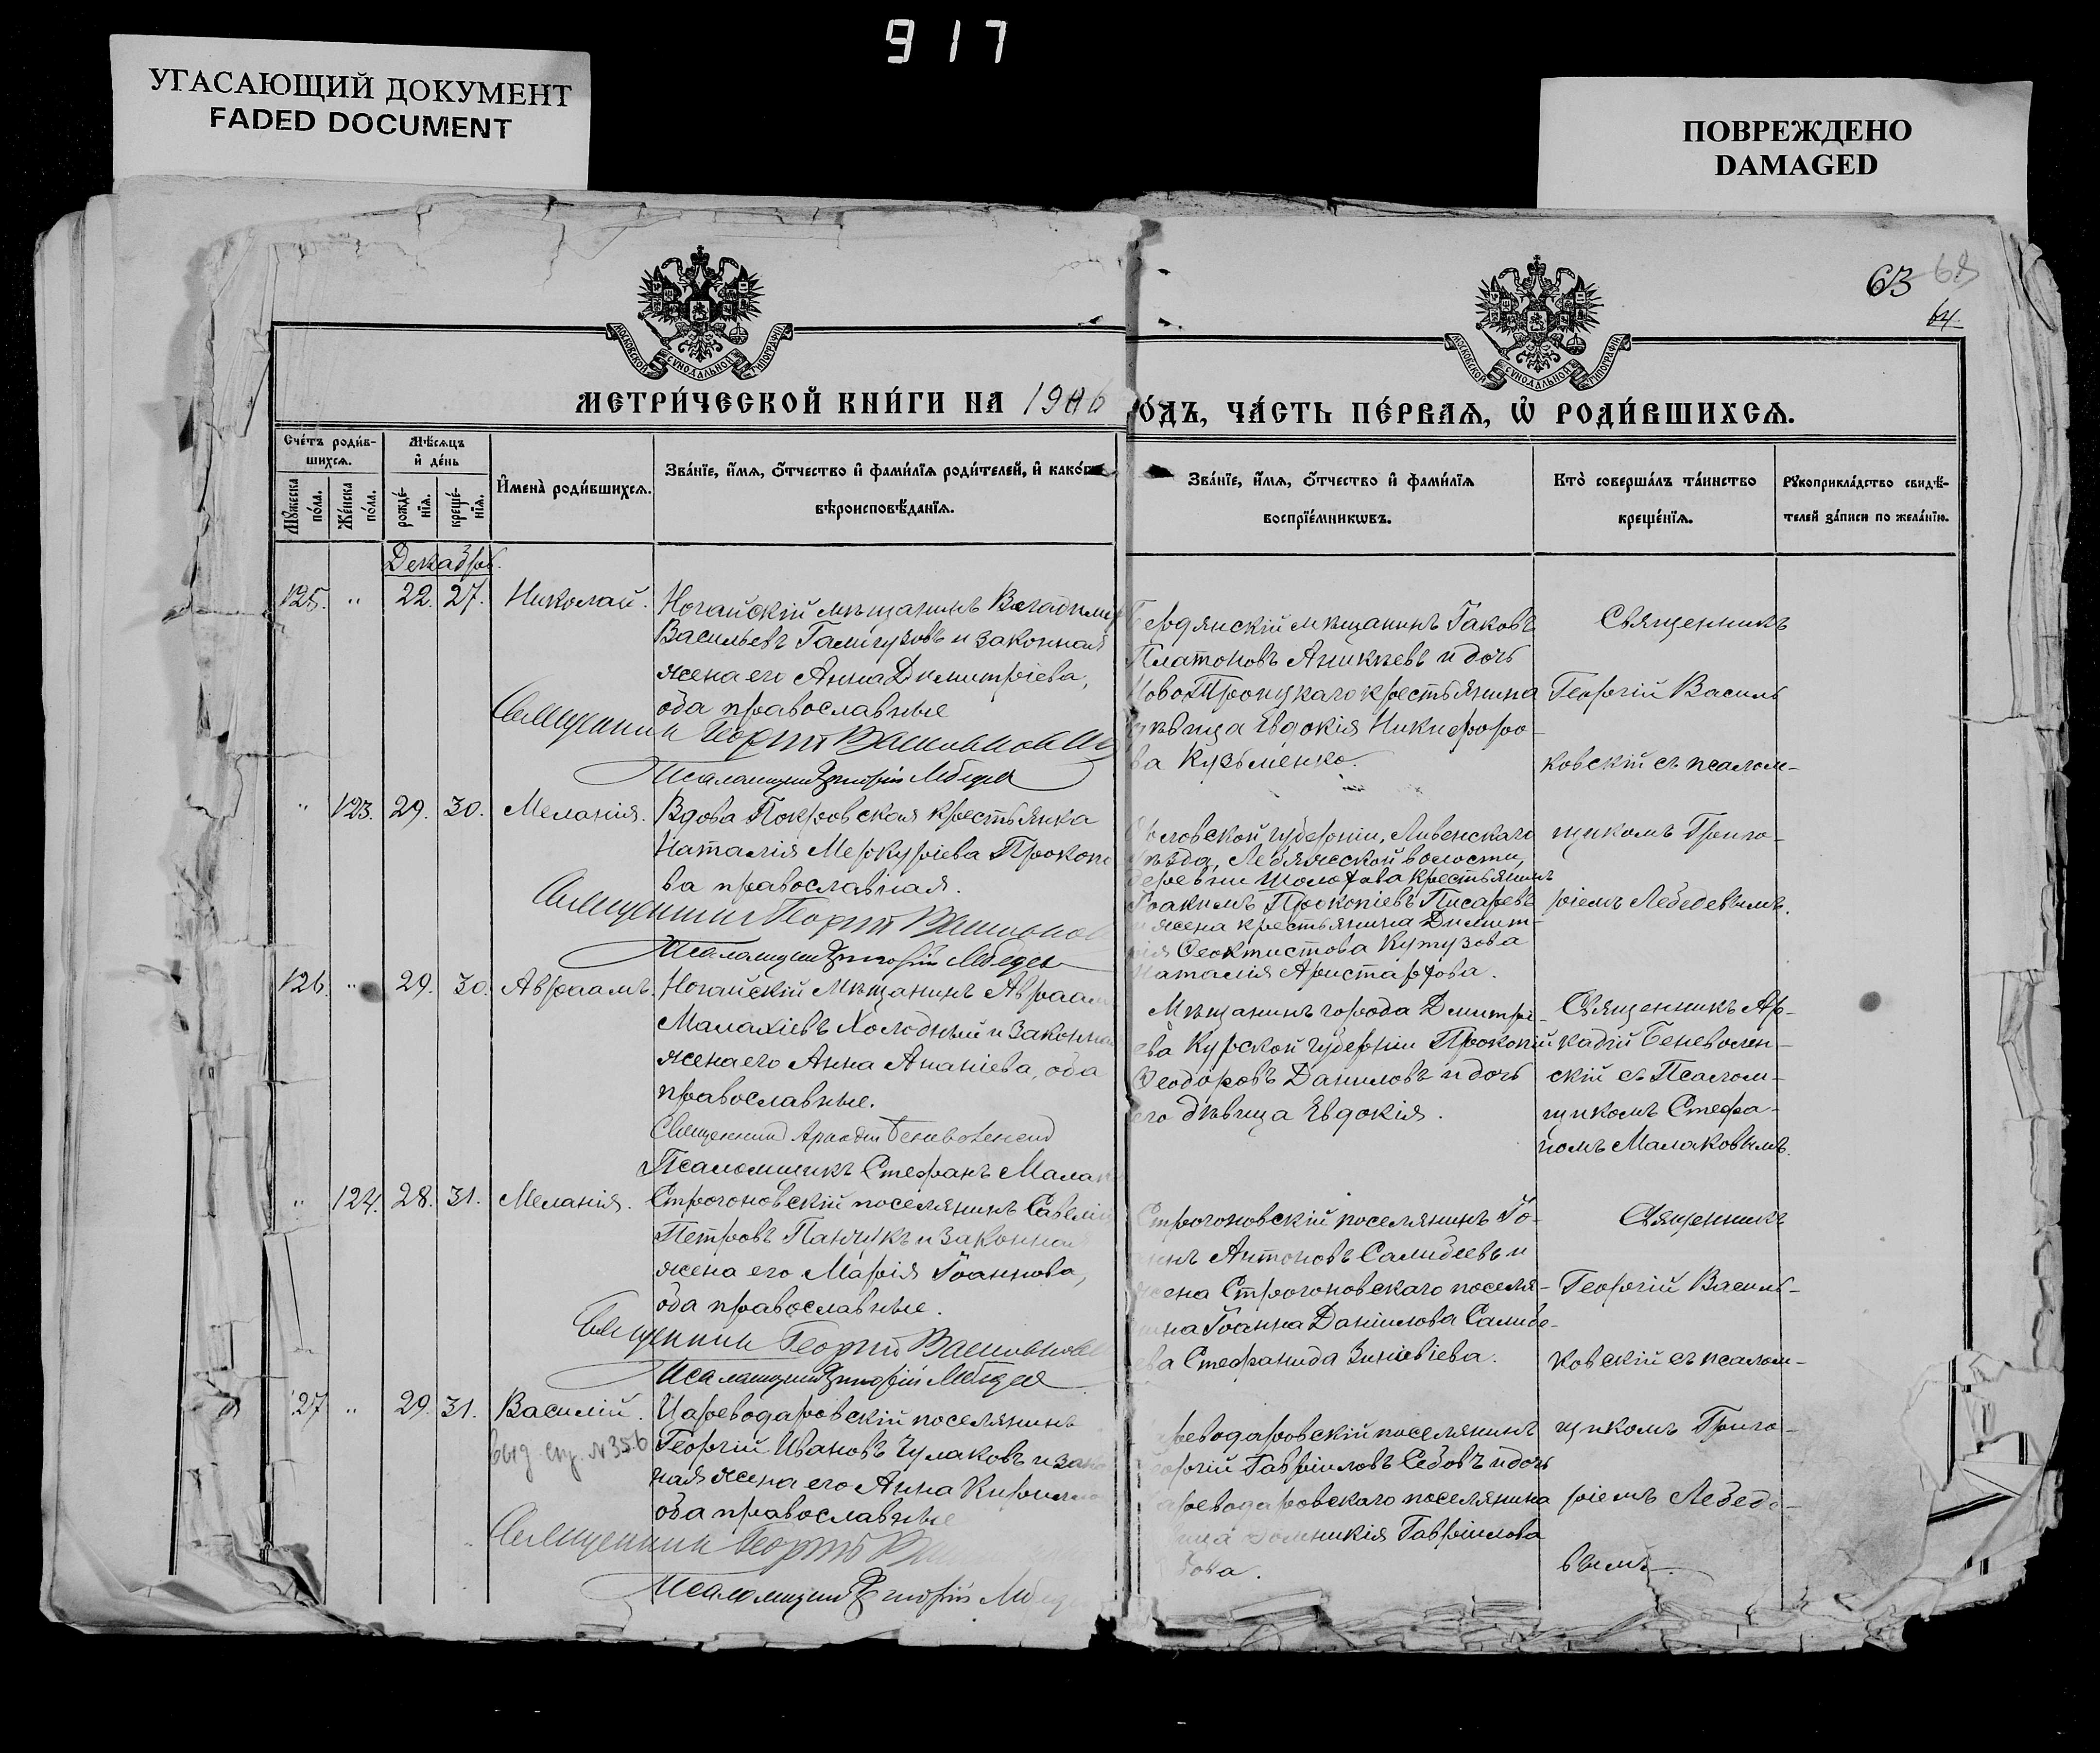 917
УГАСАЮЩИЙ ДОКУМЕНТ
FADED DOCUMENT
ПОВРЕЖДЕНО
DAMAGED
63
64.
МОСКОВСКОЙ СѴНОДАЛЬНОЙ ТИПОГРАФІИ
МОСКОВСКОЙ СѴНОДАЛЬНОЙ ТИПОГРАФІИ
МЕТРИ́ЧЕСКОЙ КНИ́ГИ НА 1906
О́ДЪ, ЧА́СТЬ ПЕ́РВАѦ, Ѡ҆ РОДИ́ВШИХСѦ.
Сче́тъ роди́в-
шихсѧ.
Мѣ́сѧцъ
и҆ де́нь
Мꙋ́жеска по́ла.
Же́нска по́ла.
рожде́-
нїѧ.
креще́-
нїѧ.
И҆мена̀ роди́вшихсѧ.
Зва́нїе, и҆́мѧ, ѻ҆́тчество и҆ фами́лїѧ роди́телей, и҆ како́гѡ
вѣроисповѣ́данїѧ.
Зва́нїе, и҆́мѧ, ѻ҆́тчество и҆ фами́лїѧ
воспрїе́мникѡвъ.
Кто̀ соверша́лъ та́инство
креще́нїѧ.
Рꙋкоприкла́дство свидѣ́-
телей за́писи по жела́нїю.
Декабрь.
125. " 22. 27. Николай. Ногайскій мѣщанинъ Владимі
Васильевъ и законная
жена его Анна Димитріева,
оба православные
Священникъ Георгій Васильковскій
Псаломщикъ Григорій Лебедев
Бердянскій мѣщанинъ Іаковъ
Платоновъ Аникѣевъ и дочь
крестьянина
дѣвица Евдокія Никифоро-
ва Кузьменко.
Священникъ
Георгій Василь
ковскій съ псалом-
" 123. 29. 30. Меланія. Вдова Покровская крестьянка
Наталія Меркуріева Прокопе
ва православная.
Священникъ Георгій Васильков
Псаломщикъ Григорій Лебедев
Орловской губерніи, Ливенскаго
уѣзда, волости,
деревни крестьянинъ
Іоакимъ Прокопіевъ Писаревъ
и жена крестьянина Димит-
рія Ѳеоктистова Кутузова
Наталія Аристархова.
щикомъ Григо-
ріемъ Лебедевымъ.
126. " 29. 30. Авраамъ. Ногайскій мѣщанинъ Авраам
Малахіевъ Холодный и законна
жена его Анна Ананіева, оба
православные.
Священникъ Аркадій Беневоленскій
Псаломщикъ Стефанъ Малак
Мѣщанинъ города Дмитрі-
ева Курской губерніи Прокопій
Ѳеодоровъ Даниловъ и дочь
его дѣвица Евдокія.
Священникъ Ар-
кадій Беневолен-
скій съ Псалом-
щикомъ Стефа-
номъ Малаковымъ.
" 124. 28. 31. Меланія. Строгоновскій поселянинъ Савелій
Петровъ Панчукъ и законна
жена его Марія Іоаннова,
оба православные.
Священникъ Георгій Васильковс
Псаломщикъ Григорій Лебедев
Строгоновскій поселянинъ Іо-
аннъ Антоновъ Самидеевъ и
жена Строгоновскаго поселя-
нина Іоанна Даніилова Самиде-
ева Стефанида Зиновіева.
Священникъ
Георгій Василь-
ковскій съ псалом-
127 " 29. 31. Василій. Цареводаровскій поселянинъ
Георгій Ивановъ Чулаковъ и зак
ная жена его Анна Кирилло
оба православные
выд. сп. №356
Священникъ Георгій
Псаломщикъ Григорій Лебед
реводаровскій поселянинъ
оргій Гавріиловъ Сѣдовъ и дочь
ареводаровскаго поселянина
вица Домникія Гавріилова
дова.
щикомъ Григо-
ріемъ Лебеде-
вымъ.